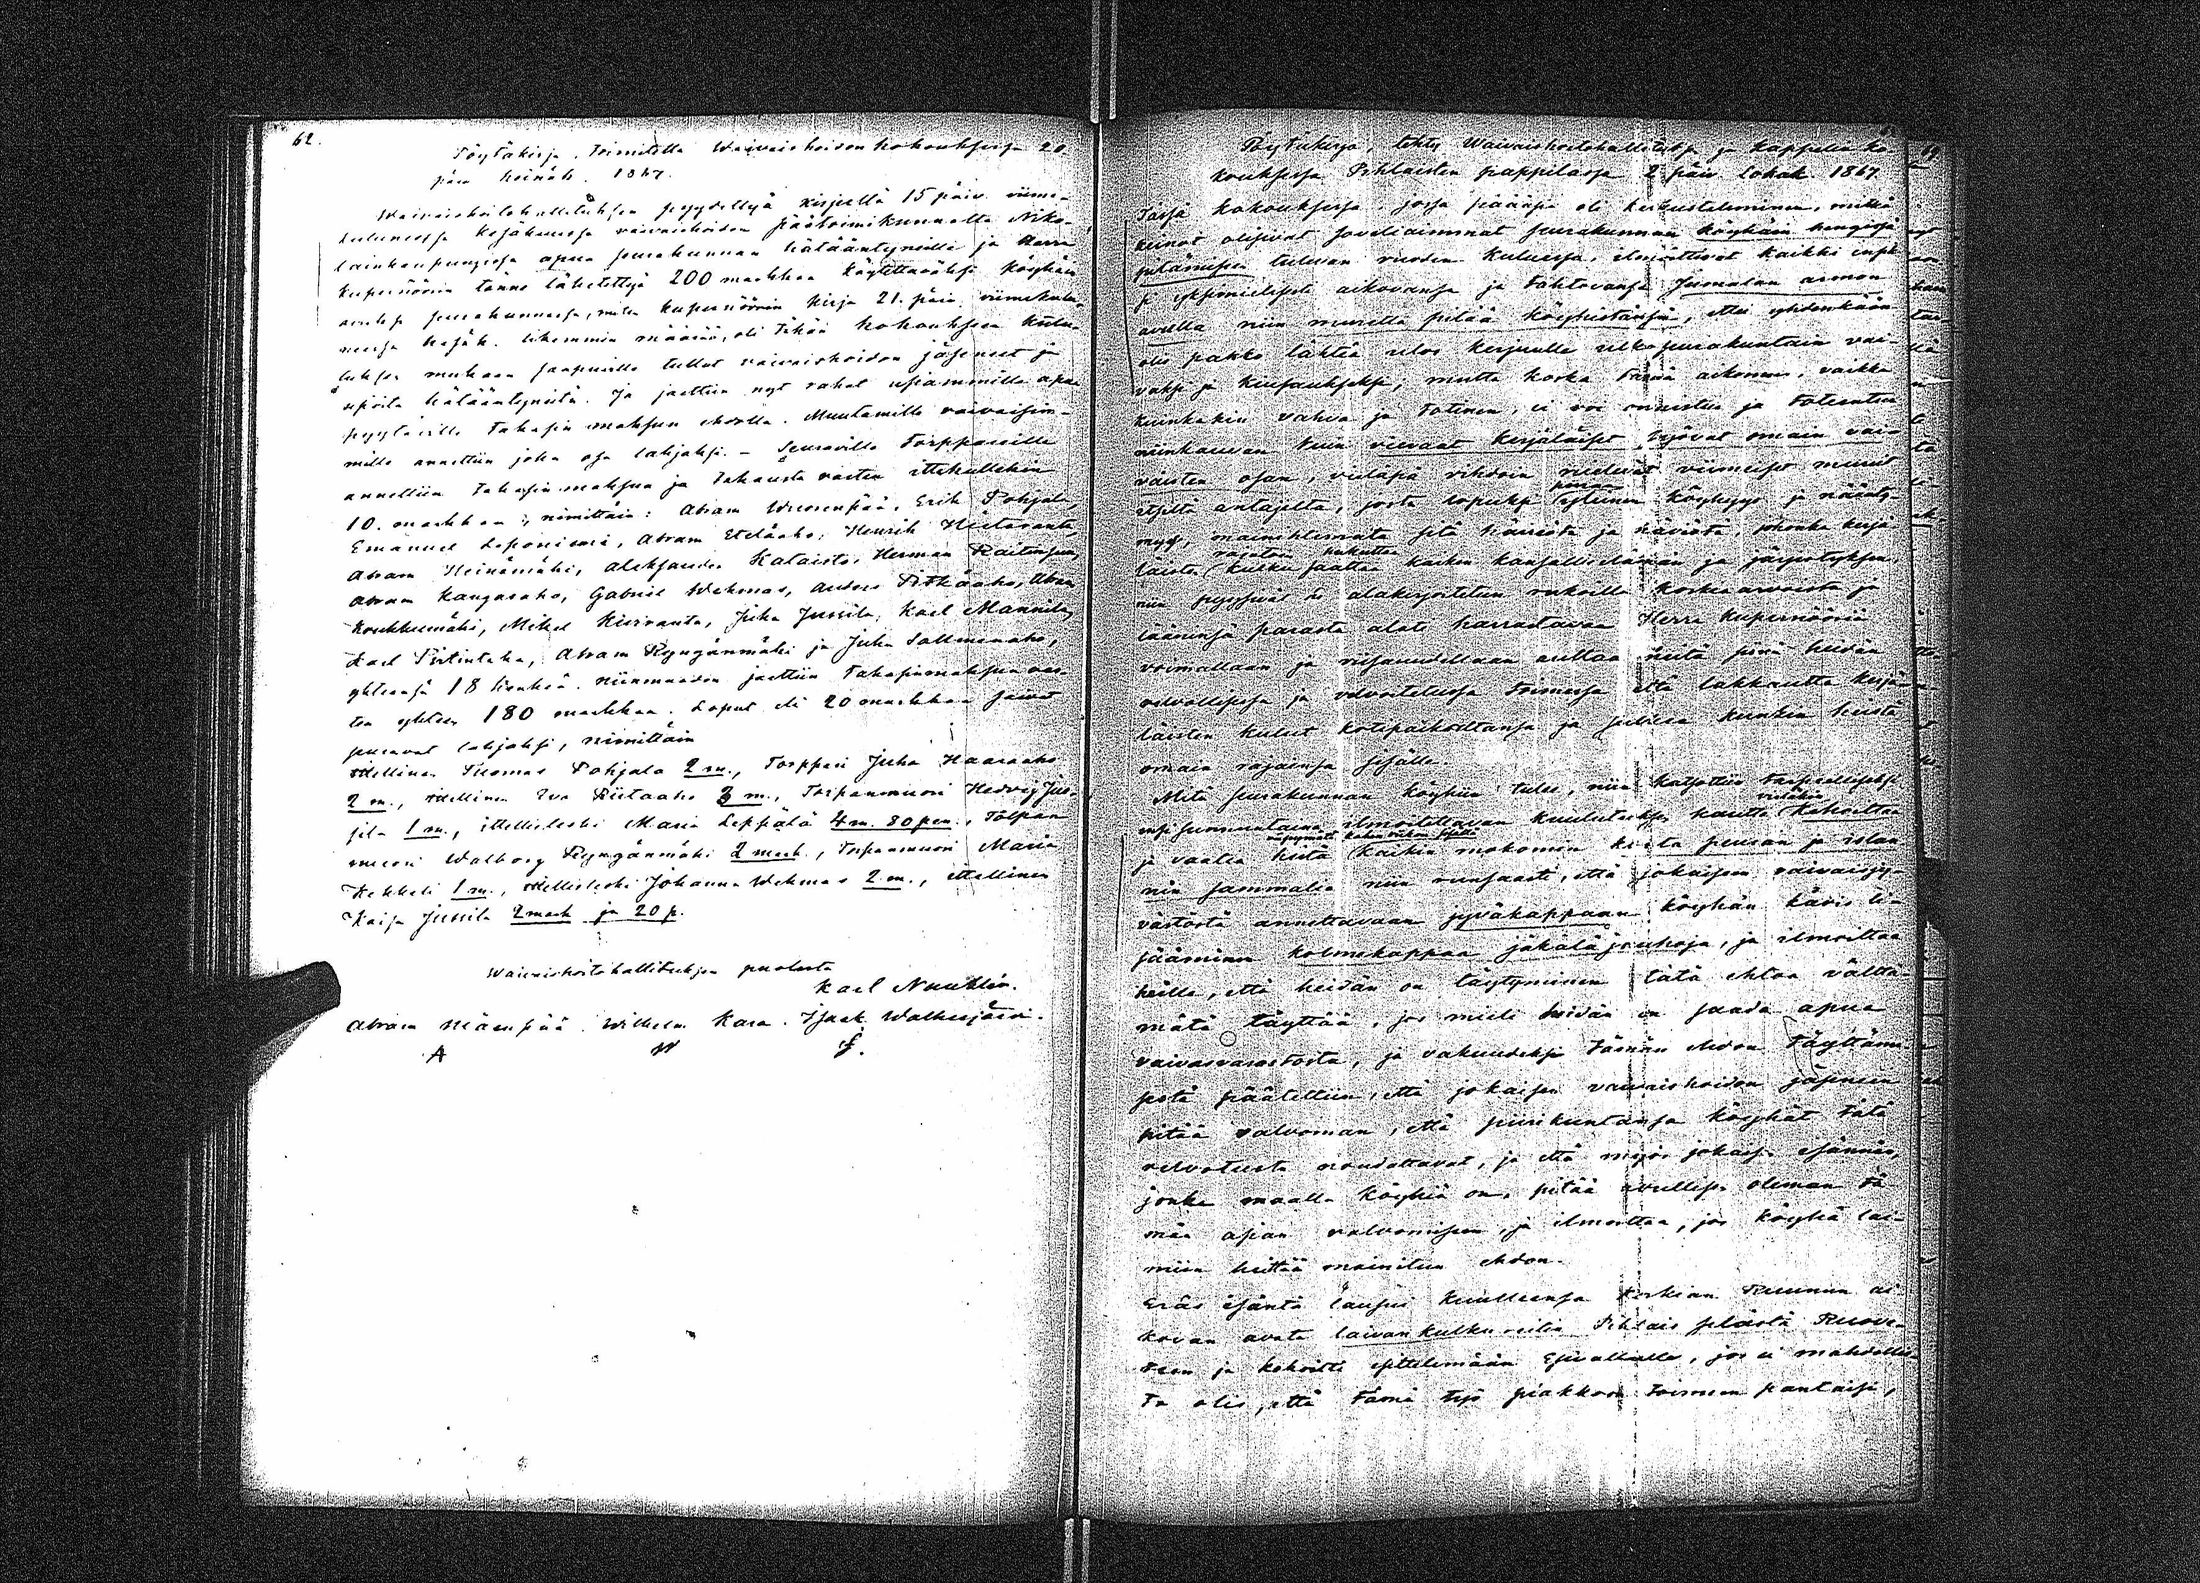 62.
Pöytäkirja, toimitettu Waivaishoidon kokouksessa 20.
päiv. heinäk. 1867.
Waivaishoitohallituksen pyydettyä kirjeellä 15 päiv. viime-
kuluneessa kesäkuussa vaivaishoidon päätoimikunnalta Niko-
lainkaupungissa apua seurakunnan hätääntyneille ja Herra
kupernöörin tänne lähetettyä 200 markkaa käytettäväksi köyhäin
avuksi seurakunnassa, miten kupernöörin kirja 21. päiv. viimekulu-
neessa kesäk. likemmin määrää, oli tähän kokoukseen kuulu-
tuksen mukaan saapuville tullut vaivaishoidon jäsenet ja
useita hätääntyneitä. Ja jaettiin nyt rahat useammille apua
pyytäville takasin maksun ehdolla. Muutamille vaivaisim-
mille annettiin joku osa lahjaksi. – Seuraaville torppareille
annettiin takasin maksua ja takausta vasten ittekullekin
10. markkaa, nimittäin: Abram Wuorenpää, Erik Pohjola,
Emanuel Leponiemi, Abram Eteläaho, Henrik Hietaranta,
Abram Heinämäki, Aleksander Kataisto, Herman Raitinpää,
Abram Kangasaho, Gabriel Wehmas, Anders Pitkäaho, Abram
Koukkumäki, Mikel Kiviranta, Juha Jussila, Karl Mannila,
Karl Pirtintaka, Abram Ryngänmäki ja Juha Sallmenaho,
yhteensä 18 henkeä. Niinmuodon jaettiin takasinmaksua vas-
ten yhteen 180 markkaa. Loput eli 20 markkaa saivat
seuraavat lahjaksi, nimittäin
itellinen Tuomas Pohjala 2 m., torppari Juha Haaraaho
2 m., itellinen Eva Riitaaho 3 m., torpanmuori Hedvig Jus-
sila 1 m., itellisleski Maria Leppälä 4 m. 80 pen., torpan
muori Walborg Ryngänmäki 2 mark., torpanmuori Maria
Kekkeli 1 m., itellisleski Johanna Wehmas 2 m., itellinen
Kaisa Jussila 2 mark ja 20 p.
Waivaishoitohallituksen puolesta
Karl Nuuttlin.
Abram Mäenpää. Wilhelm Kara. Isaak Walkeajärvi.
A W I.
Pöytäkirja, tehty Waivaishoitohallituksen ja kappelin ko-
kouksessa Pihlaisten pappilassa 2 päiv. lokak. 1867.
Tässä kokouksessa, jossa pääasia oli keskusteleminen, mitkä
keinot olisivat soveliaimmat seurakunnan köyhäin hengissä
pitämiseen tulevan vuoden kuluessa, ilmoittivat kaikki
ja yksimielisesti aikovansa ja tahtovansa Jumalan armon
avulla niin muretta pitää köyhistänsä, ettei yhdenkään
olis pakko lähteä ulos kerjuulle ulkoseurakuntain vai-
vaksi ja kiusaukseksi; mutta koska tämä aikomus, vaikka
kuinkakin vahva ja totinen, ei voi onnistua ja toteentua
niinkauan kuin vieraat kerjäläiset syövät omain vai-
vaisten osan, vieläpä vihdoin nielevät viimeiset murut
itseltä antajilta, josta lopuksi seuraa yleinen köyhyys ja nään-
nys, mainitsematta sitä häiriötä ja häviötä, jonka kerjä-
läisten rajatoin kulku saattaa kaiken kansallis elämän ja järjestyksen,
niin pyysivät he alakirjoitetun rukoilla korkiaarvoista ja
läänissä parasta alati harrastavaa Herra Kupernööriä
voimallaan ja viisaudellaan auttaa meitä siinä heidän
velvollisessa ja velvoitetussa toimessa että lakkautta kerjä-
läisten kulut kotipaikoiltansa ja sulkea kunkin heistä
omain rajainsa sisälle.
Mitä seurakunnan köyhiin tulee, niin katsottiin tarpeelliseksi
ensi sunnuntaina ilmoitettavan kuulutuksen kautta vieläkin kehoittaa
ja vaatia heitä kaikin mokomin koota peuran ja islan-
nin sammalia niin runsaasti, että jokaisen vaivaisjy-
västöstä annettavaan jyväkappaan köyhän käsis li-
sääminen kolmekappaa jäkäläjauhoja, ja ilmoittaa
heille, että heidän on täytyminen tätä ehtoa välttä-
mätä täyttää, jos mieli heidän on saada apua
vaivasvarastosta, ja vakuudeksi tämän ehdon täyttämi-
sestä päätettiin, että jokaisen vaivaishoidon jäsenen
pitää valvoman, että piirikuntansa köyhät tätä
velvotusta noudattavat, ja että myös jokaisen isännän,
jonka maalla köyhiä on, pitää avullisen oleman tä-
män asian valvomiseen, ja ilmoittaa, jos köyhä lai-
miin heittää mainitun ehdon.
Eräs isäntä lausui kuulleensa Korkian Ruunun ai-
kovan avata laivan kulku reitin Pihlais selästä Ruove-
teen ja kehoitti esittelemään Esivallalle, jos ei mahdollis-
ta olis, että tämä työ piakkoin toimeen pantaisi,